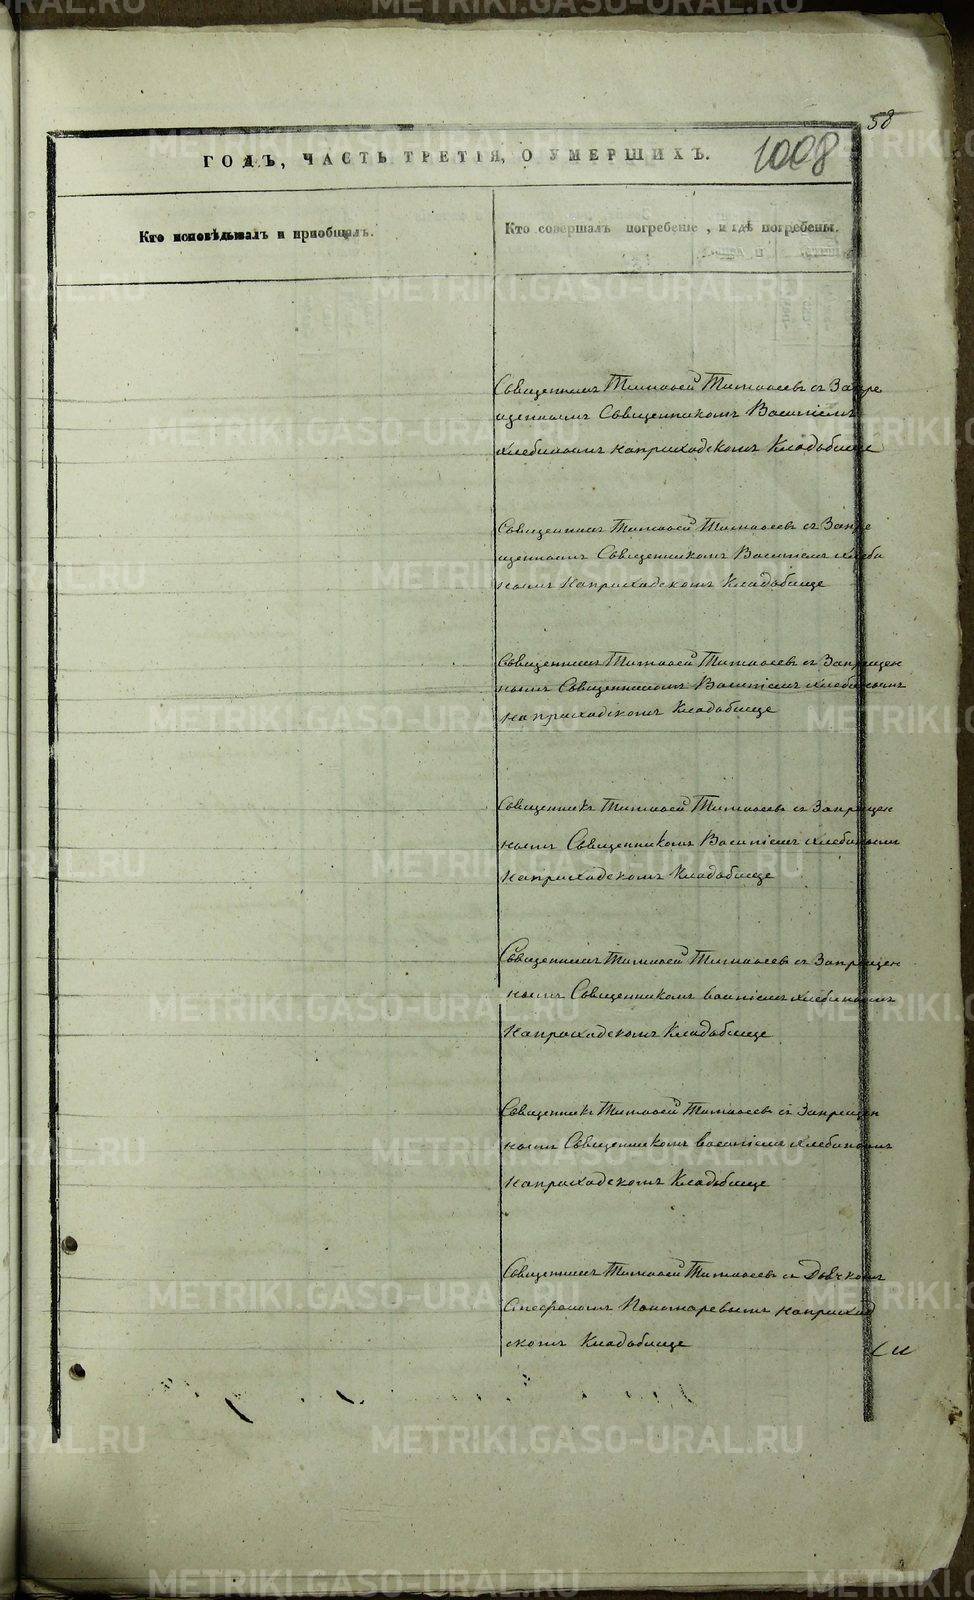 58
ГОДЪ, ЧАСТЬ ТРЕТІЯ, О УМЕРШИХЪ.
1008
Кто исповѣдывалъ и пріобщалъ.
Кто совершалъ погребеніе, и гдѣ погребены.
Священникъ Тимофей Тимофеевъ съ Запре
щеннымъ Священникомъ Василіемъ
Хлебинымъ на приходскомъ Кладбище
Священникъ Тимофей Тимофеевъ съ Запре
щеннымъ Священникомъ Василіемъ Хлеби
нымъ на приходскомъ Кладбище
Священникъ Тимофей Тимофеевъ съ Запрещен
нымъ Священникомъ Василіемъ Хлебинымъ
на приходскомъ Кладбище
Священникъ Тимофей Тимофеевъ съ Запрещен
нымъ Священникомъ Василіемъ Хлебинымъ
на приходскомъ Кладбище
Священникъ Тимофей Тимофеевъ съ Запрещен
нымъ Священникомъ Василіемъ Хлебинымъ
на приходскомъ Кладбище
Священникъ Тимофей Тимофеевъ съ Запрещен
нымъ Священникомъ Василіемъ Хлебинымъ
на приходскомъ Кладбище
Священникъ Тимофей Тимофеевъ съ Дьячкомъ
Стефаномъ Пономаревымъ на приход
скомъ Кладбище
METRIKI.GASO-URAL.RU